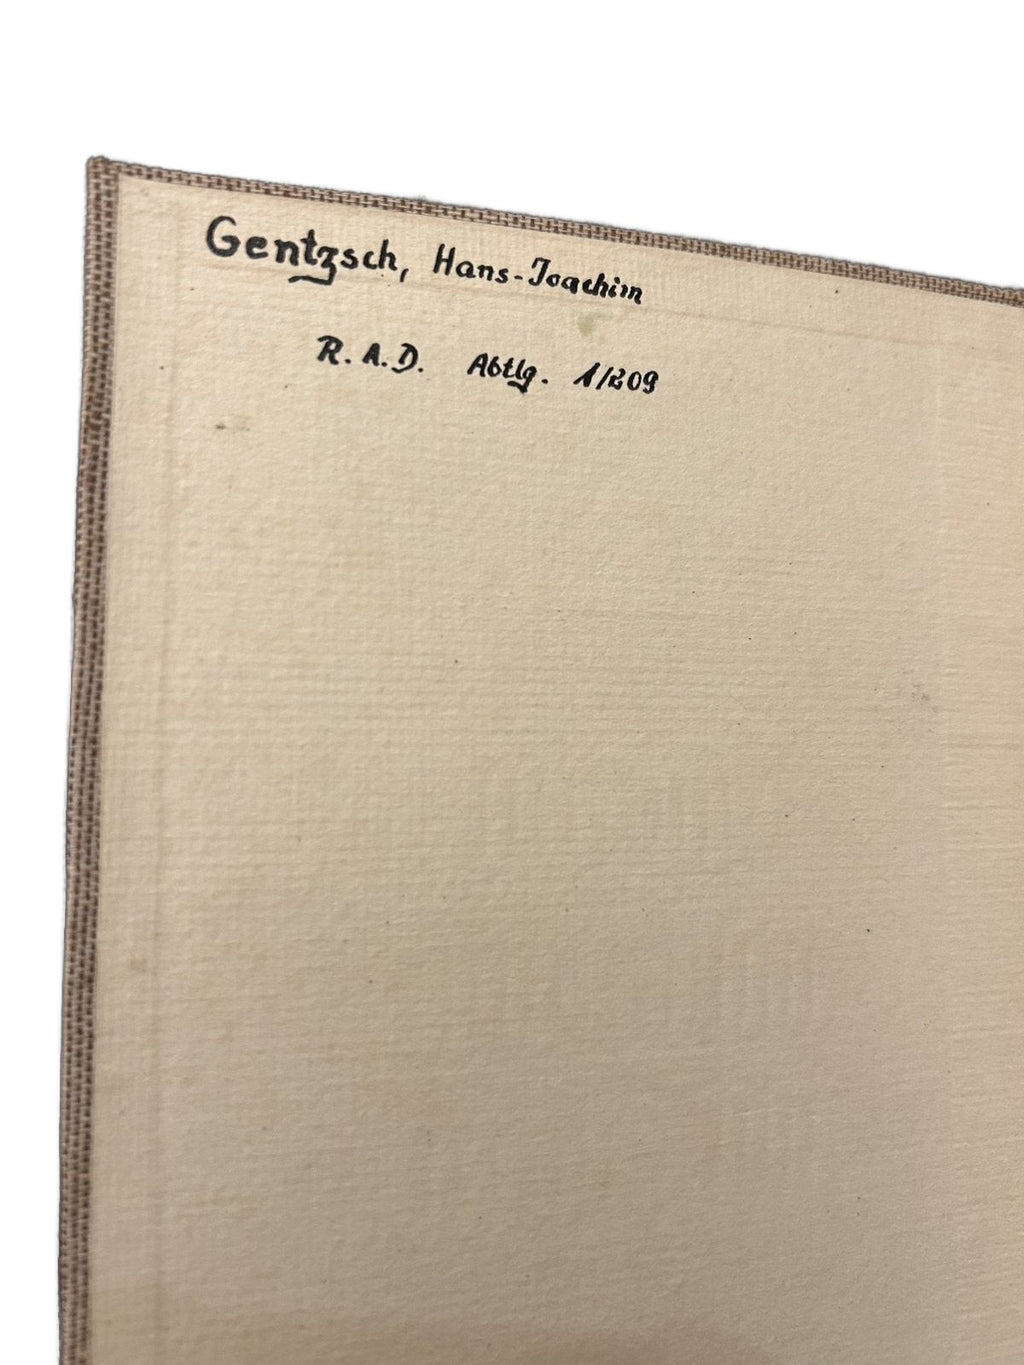 Gentzsch, Hans-Joachim
R. A. D. Abtlg. 1/209